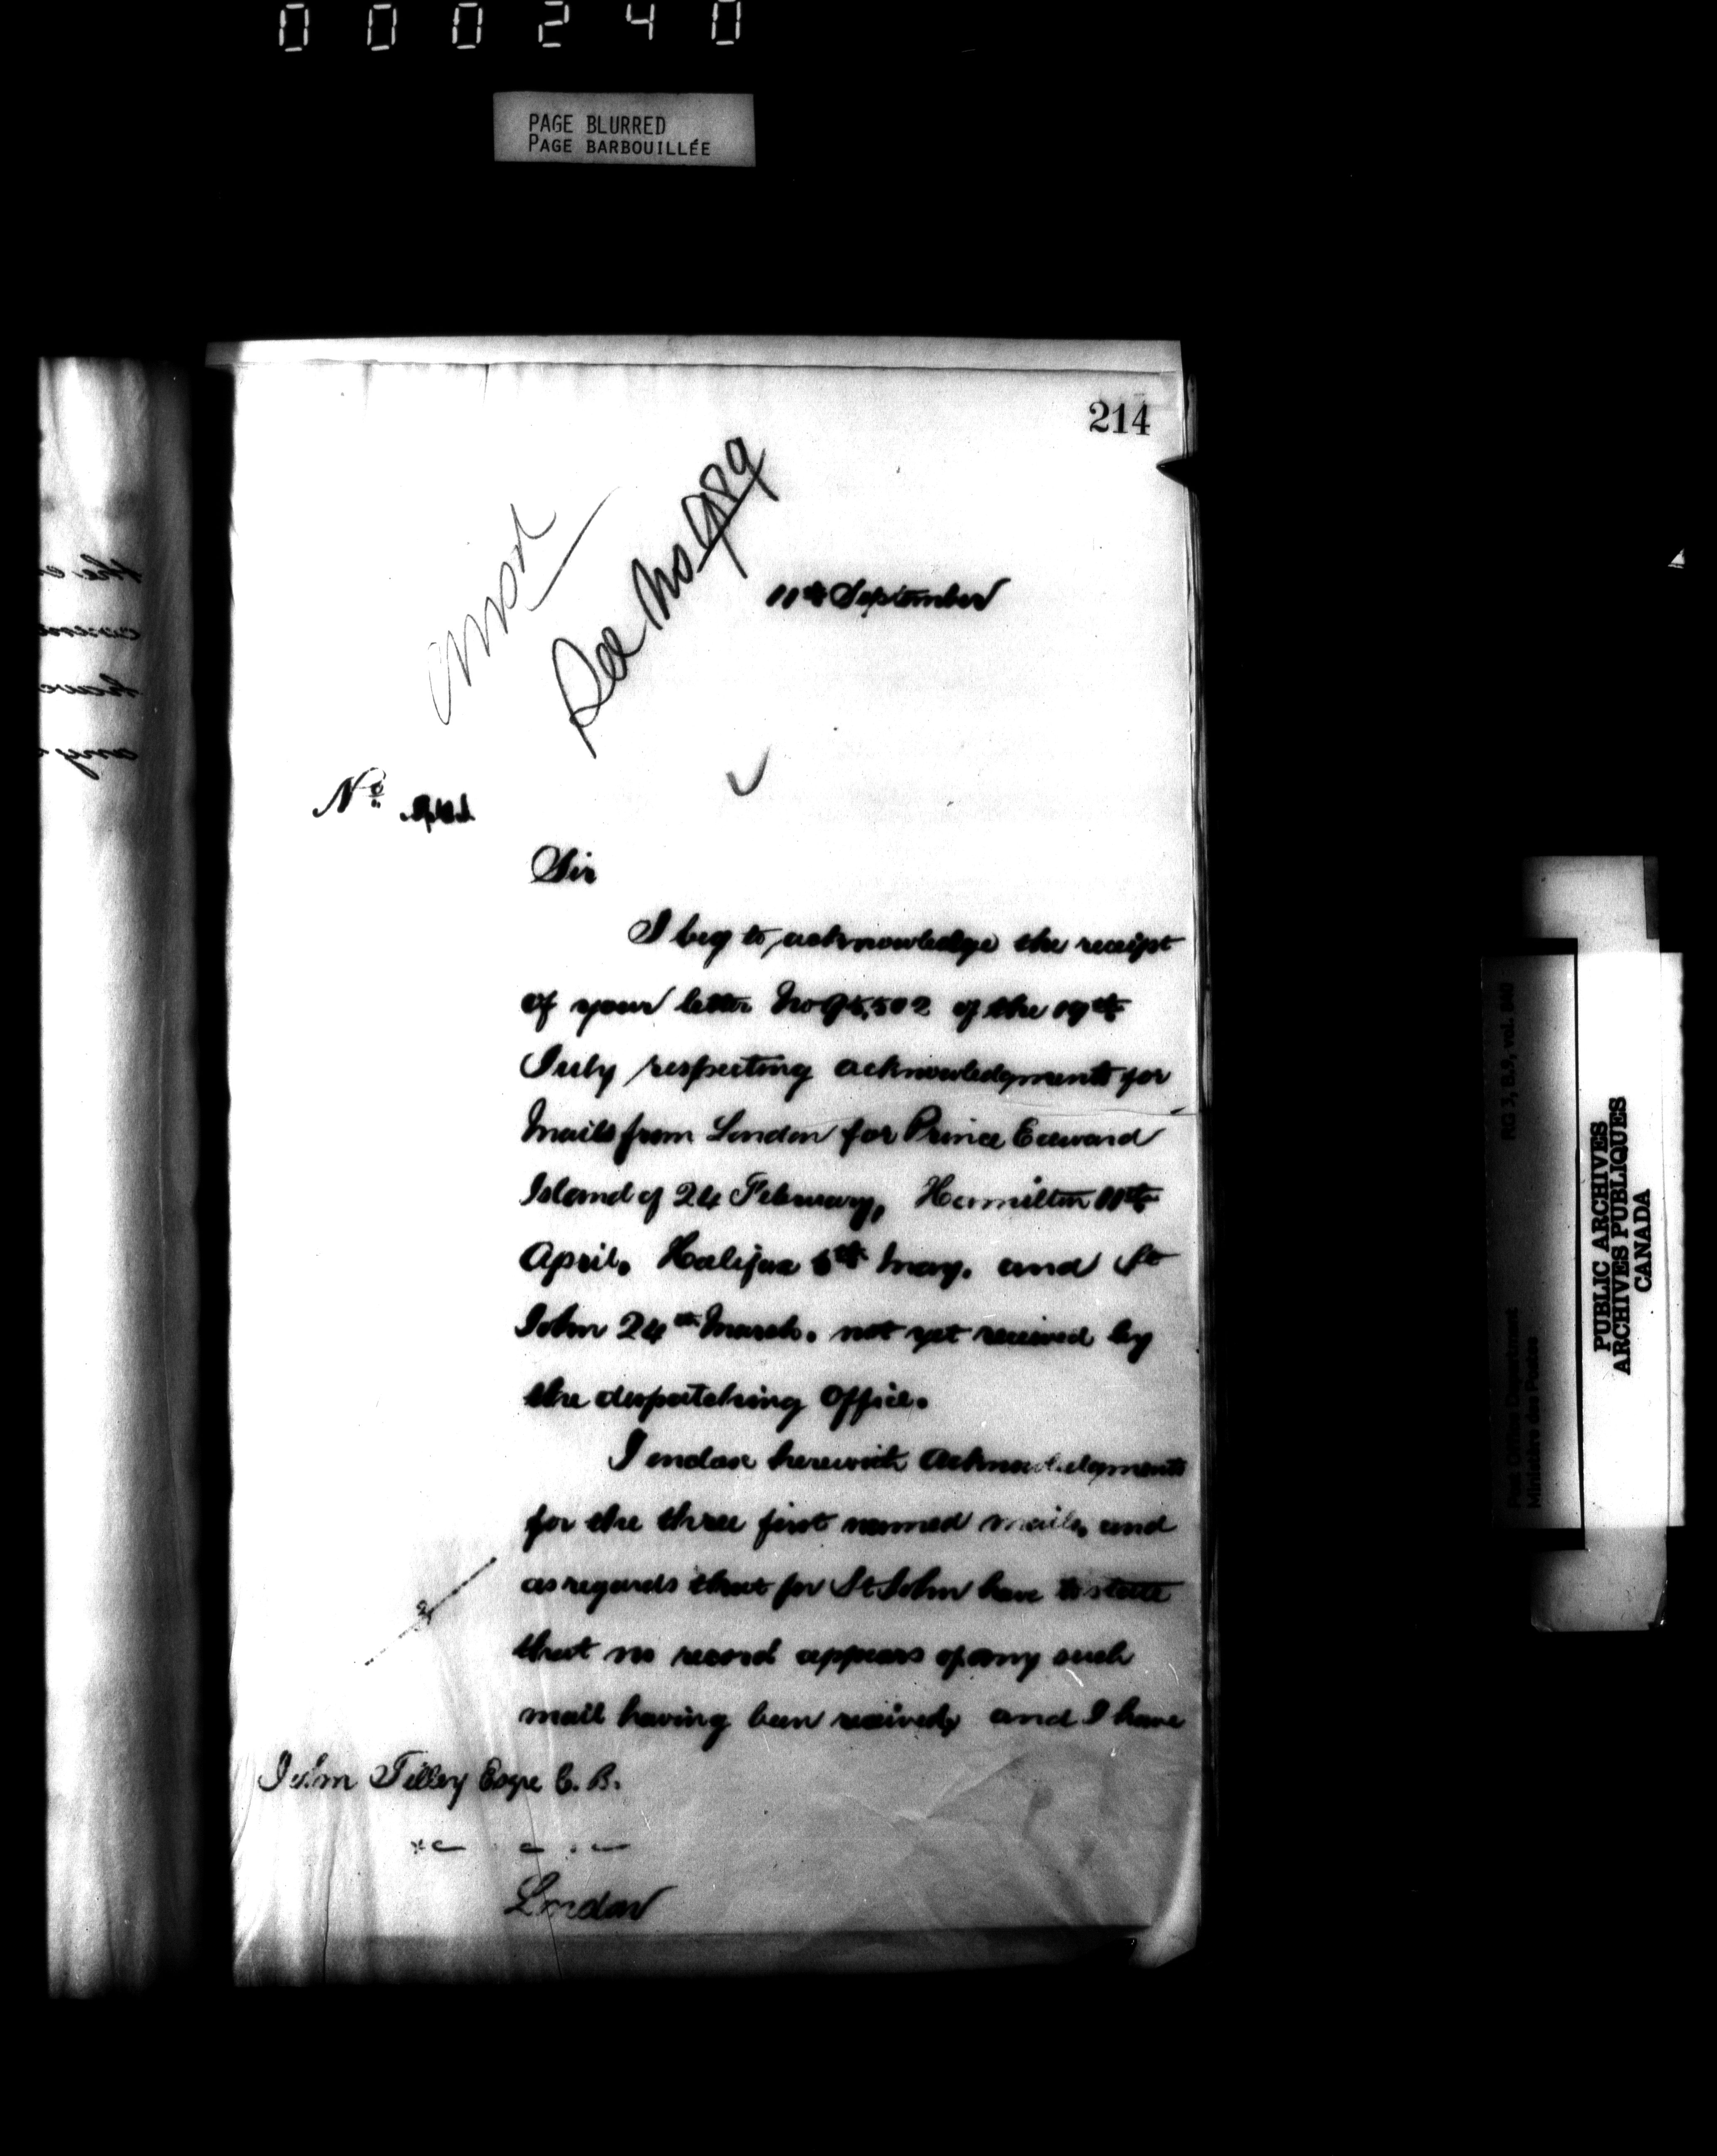 000240
PAGE BLURRED
PAGE BARBOUILLÉE
214
See No 989
11th September
No
Sir
I beg to acknowledge the receipt
of your letter No 95,502 of the 19th
July respecting acknowledgments for
Mails from London for Prince Edward
Island of 24 February, Hamilton 11th
April. Halifax 5th May. and St
John 24th March. not yet received by
the despatching Office.
I enclose herewith Acknowledgments
for the three first named mails, and
as regards that for St John have to state
that no record appears of any such
mail having been received, and I have
John Tilley Esqre C.B.
London
RG 3, B.9, vol.
Post Office Department
Ministère des Postes
PUBLIC ARCHIVES
ARCHIVES PUBLIQUES
CANADA